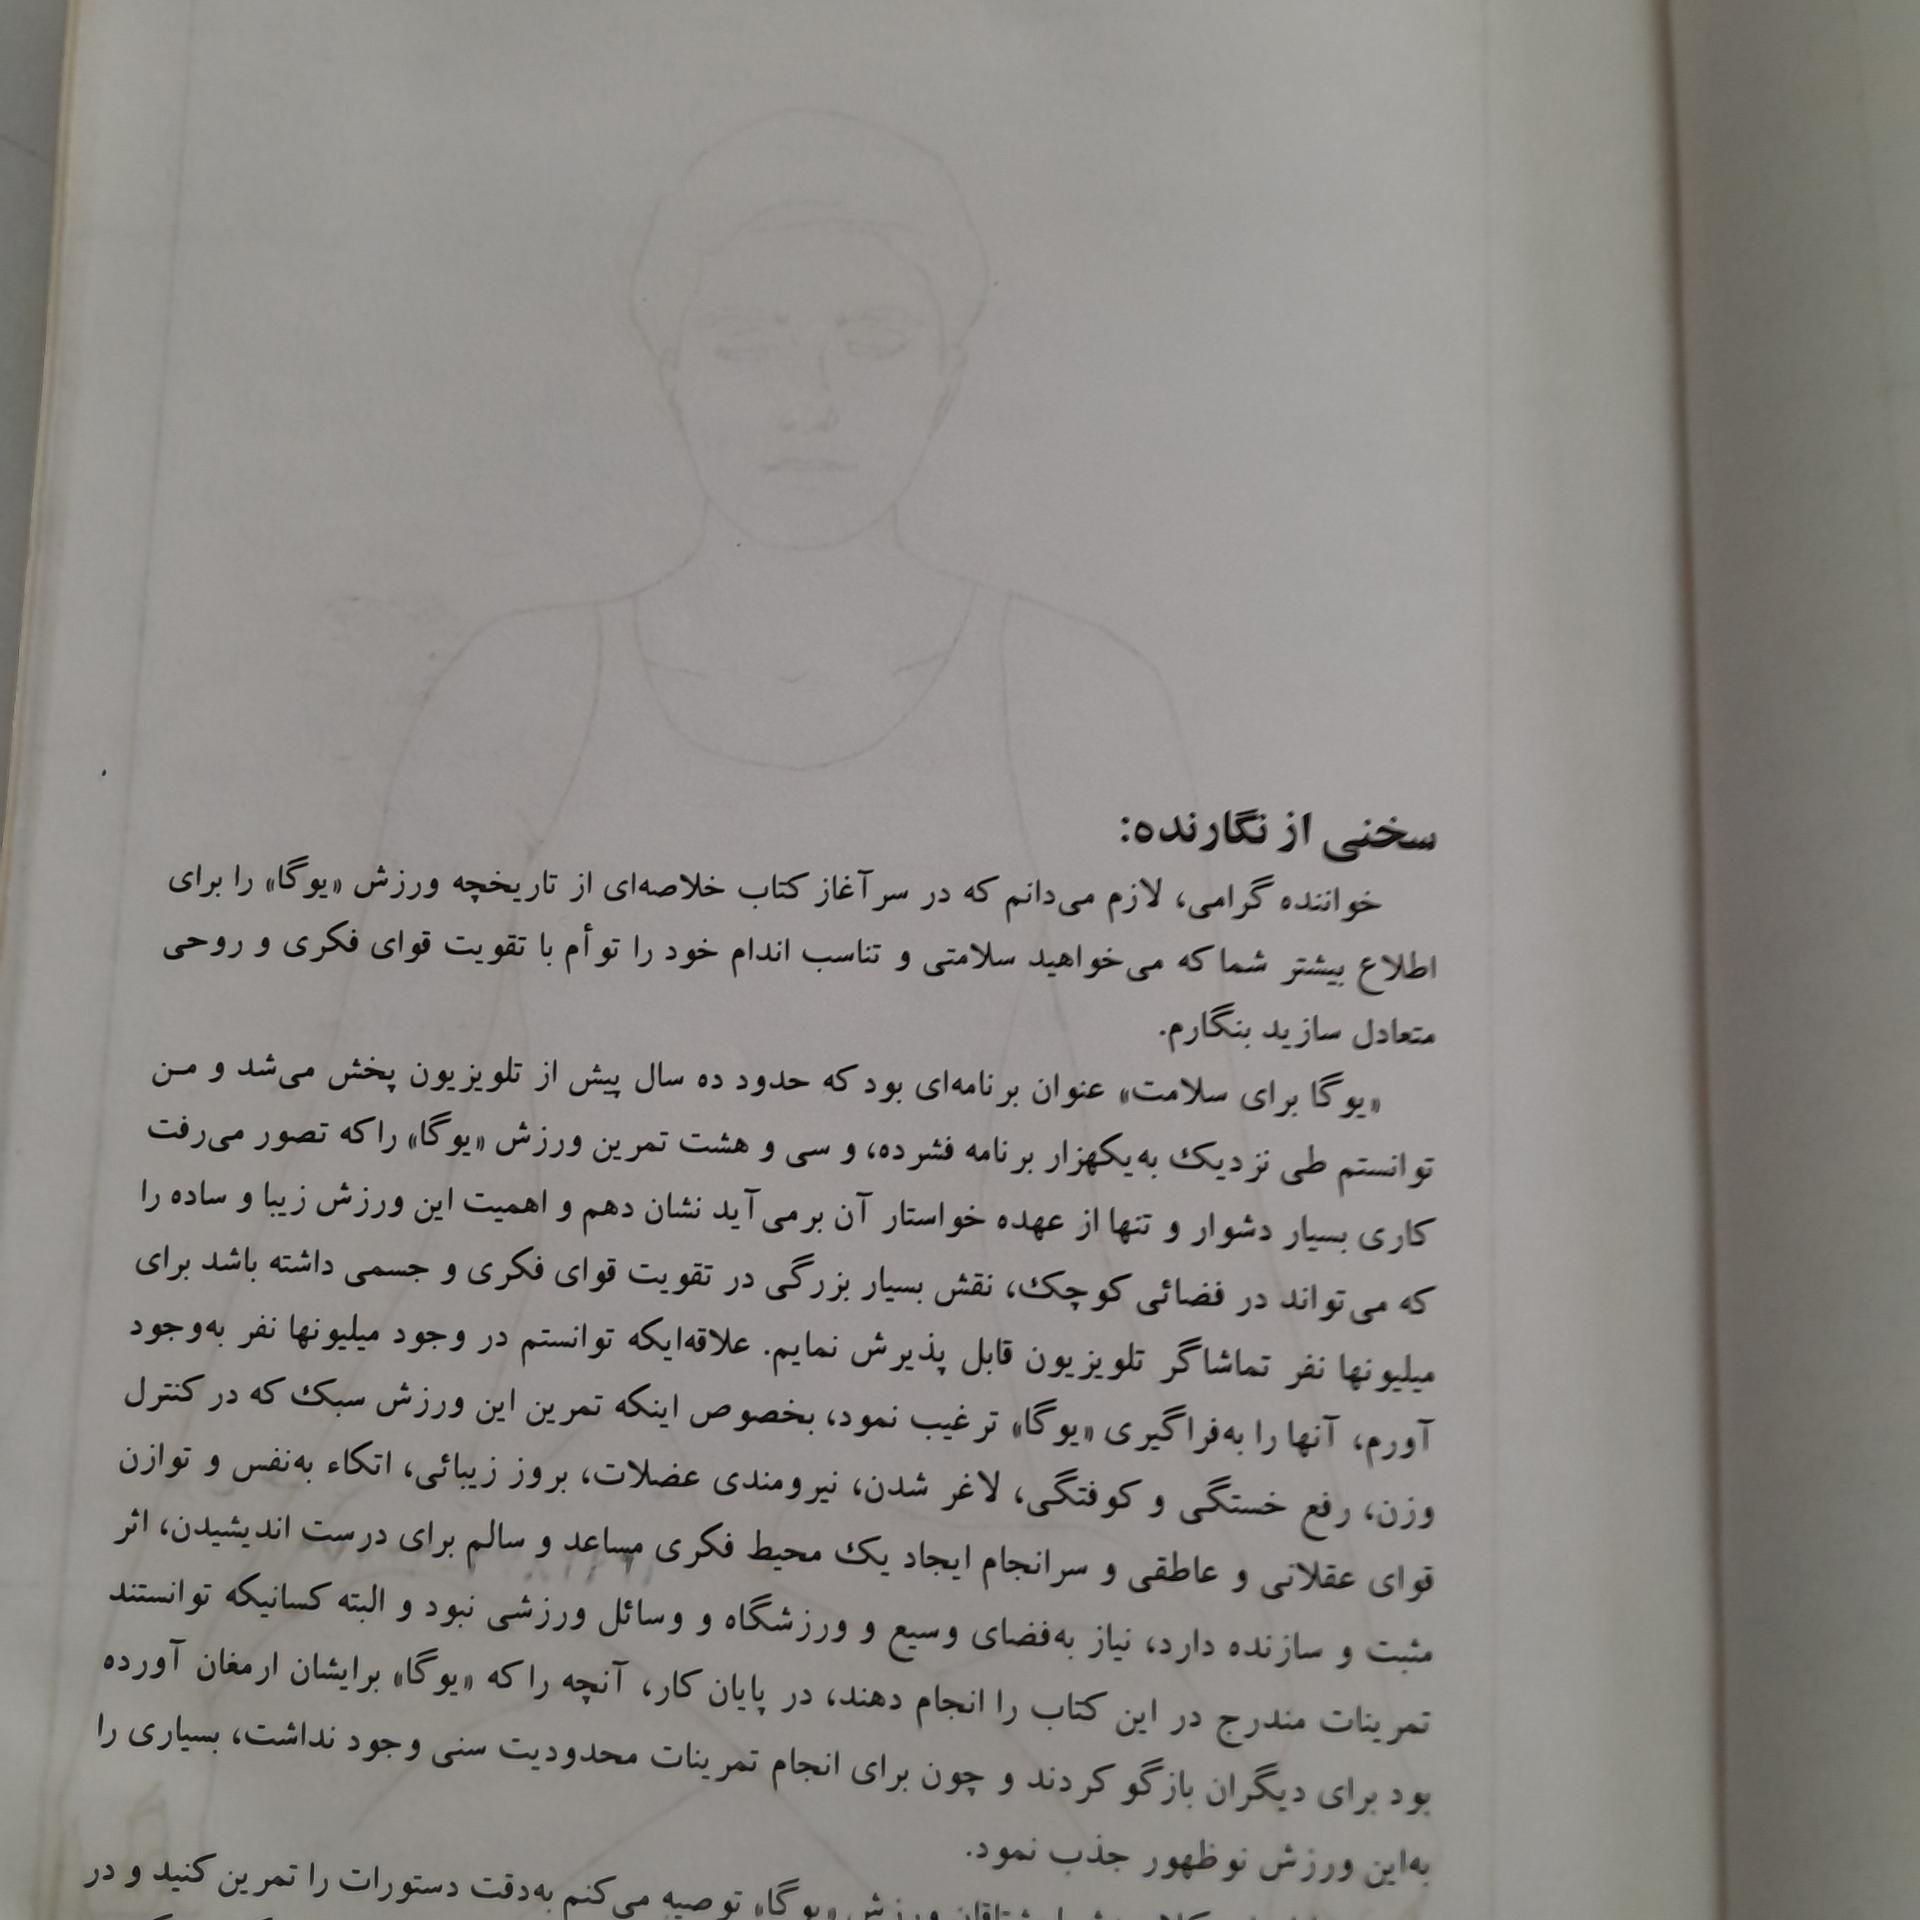 سخنی از نگارنده:
خواننده گرامی، لازم می‌دانم که در سرآغاز کتاب خلاصه‌ای از تاریخچه ورزش «یوگا» را برای
اطلاع بیشتر شما که می‌خواهید سلامتی و تناسب اندام خود را توأم با تقویت قوای فکری و روحی
متعادل سازید بنگارم.
«یوگا برای سلامت» عنوان برنامه‌ای بود که حدود ده سال پیش از تلویزیون پخش می‌شد و مـن
توانستم طی نزدیک به‌یکهزار برنامه فشرده، و سی و هشت تمرین ورزش «یوگا» را که تصور می‌رفت
کاری بسیار دشوار و تنها از عهده خواستار آن برمی‌آید نشان دهم و اهمیت این ورزش زیبا و ساده را
که می‌تواند در فضائی کوچک، نقش بسیار بزرگی در تقویت قوای فکری و جسمی داشته باشد برای
میلیونها نفر تماشاگر تلویزیون قابل پذیرش نمایم. علاقه‌ایکه توانستم در وجود میلیونها نفر به‌وجود
آورم، آنها را به‌فراگیری «یوگا» ترغیب نمود، بخصوص اینکه تمرین این ورزش سبک که در کنترل
وزن، رفع خستگی و کوفتگی، لاغر شدن، نیرومندی عضلات، بروز زیبائی، اتکاء به‌نفس و توازن
قوای عقلانی و عاطقی و سرانجام ایجاد یک محیط فکری مساعد و سالم برای درست اندیشیدن، اثر
مثبت و سازنده دارد، نیاز به‌فضای وسیع و ورزشگاه و وسائل ورزشی نبود و البته کسانیکه توانستند
تمرینات مندرج در این کتاب را انجام دهند، در پایان کار، آنچه را که «یوگا» برایشان ارمغان آورده
بود برای دیگران بازگو کردند و چون برای انجام تمرینات محدودیت سنی وجود نداشت، بسیاری را
به‌این ورزش نوظهور جذب نمود.
ورزش «یوگا» توصیه می‌کنم به‌دقت دستورات را تمرین کنید و در